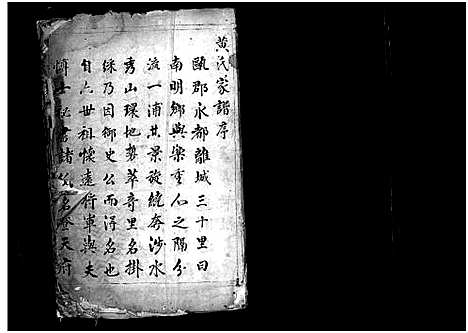 黄氏家譜序
甌郡永都離城三十里曰
南明鄉與樂童仙之隔分
流一浦其景旋繞奔涉水
秀山環地勢萃奇里名掛
綵乃因御史公而得名也
自六世祖懷遠行軍與夫
博士秘書諸公名登天府